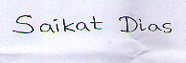 Saikat Dias